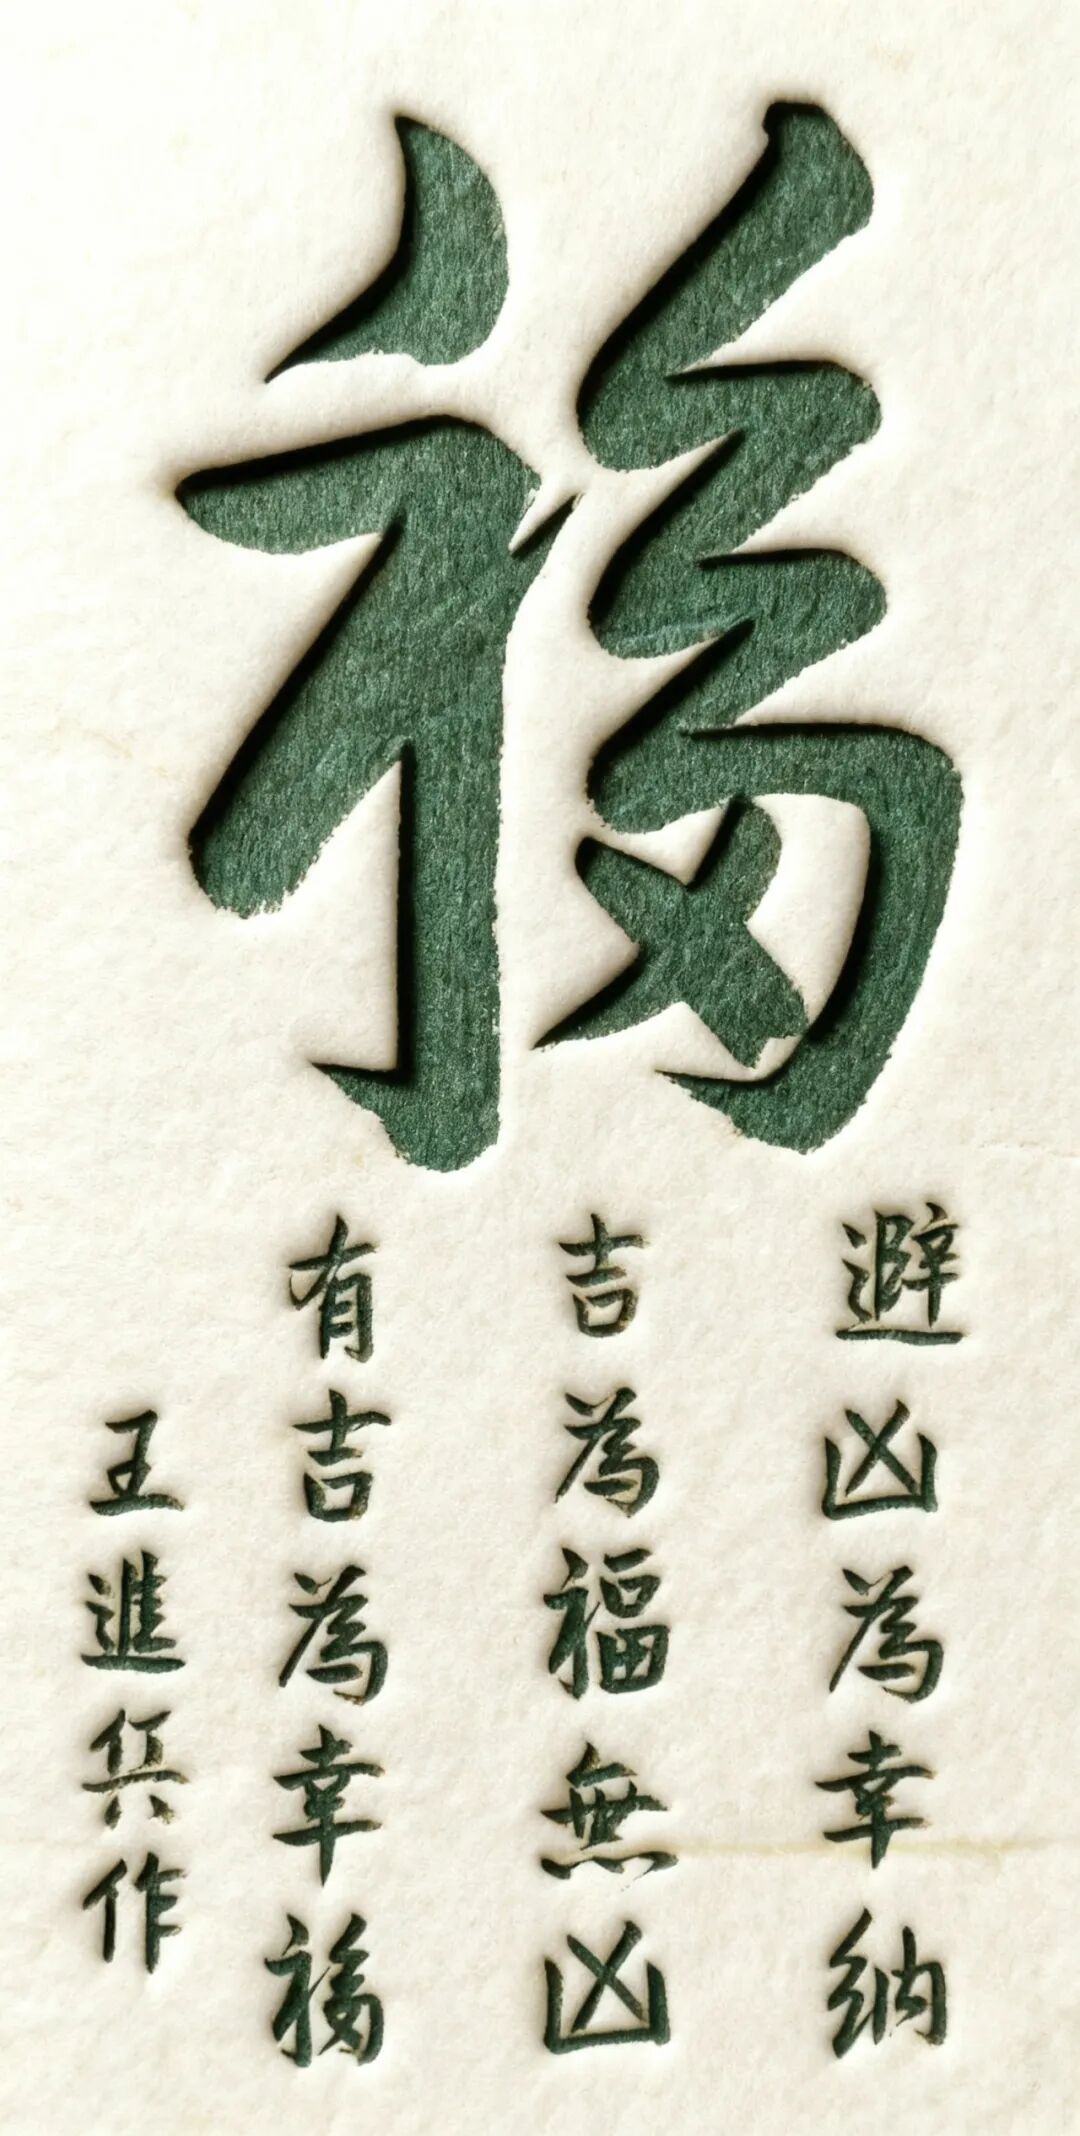 福
避凶為幸納
吉為福無凶
有吉為幸福
王進兵作